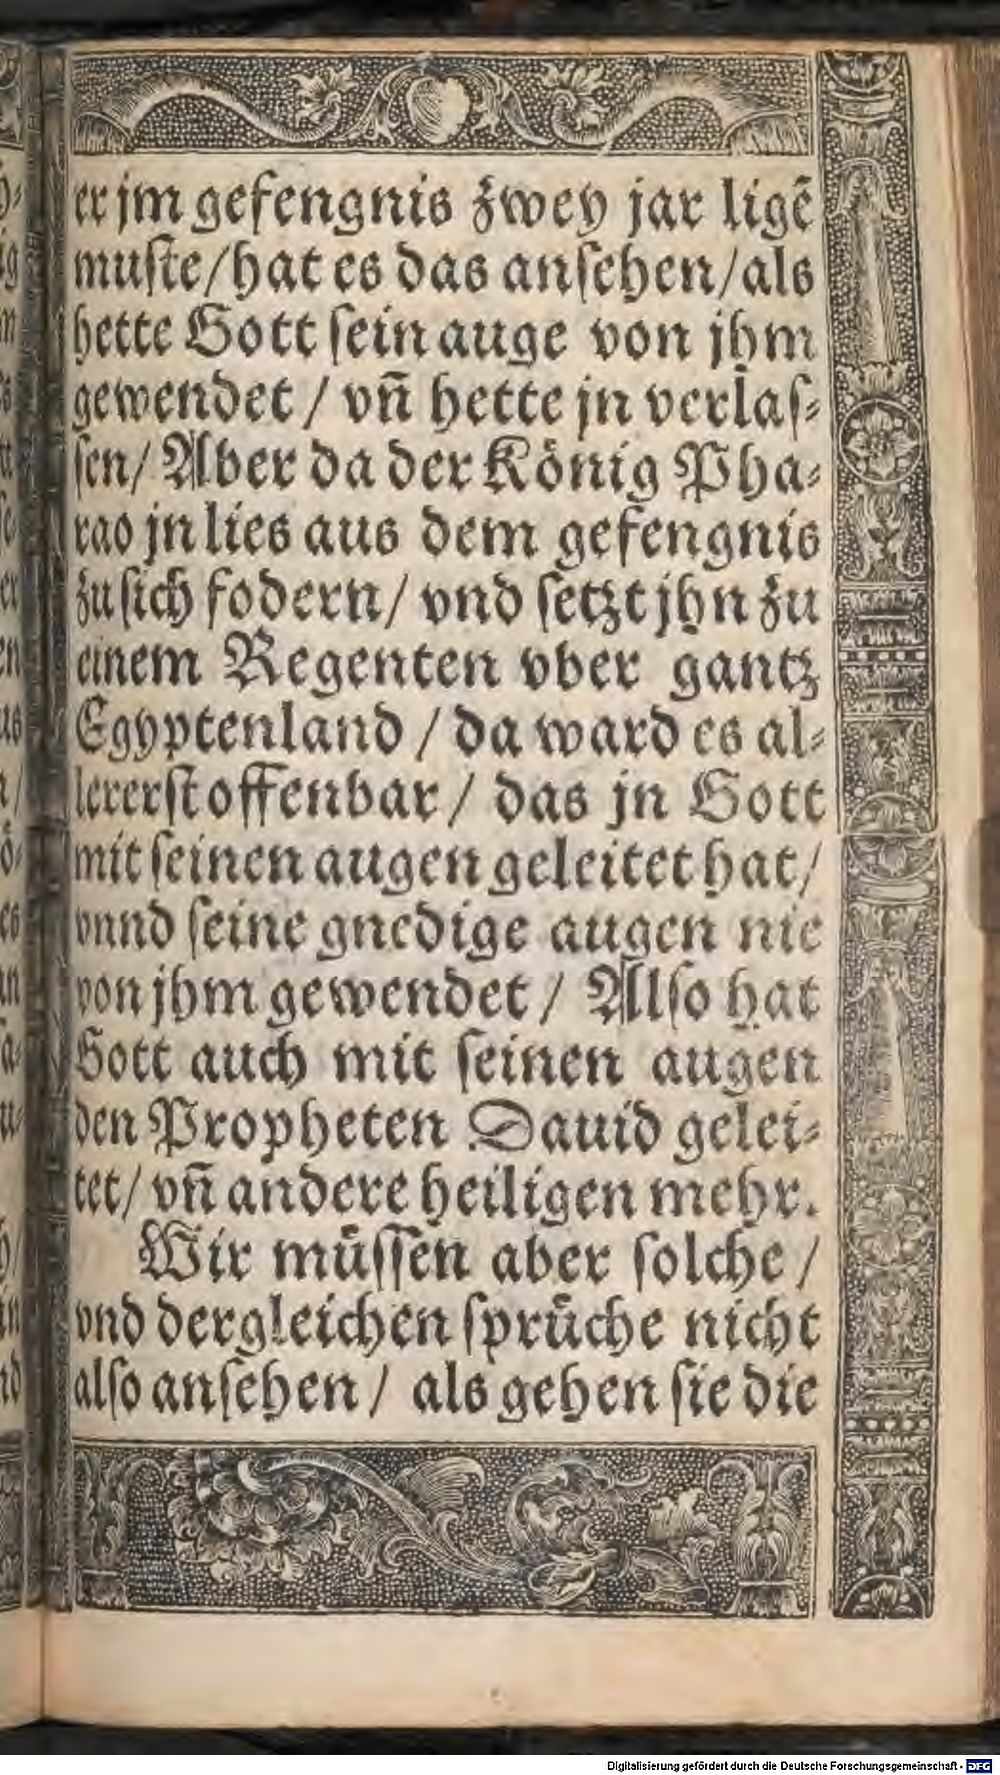 er jm gefengnis zwey jar ligẽ
muſte/hat es das anſehen/als
hette Gott ſein auge von jhm
gewendet / vñ hette jn verlaſ⸗
ſen/ Aber da der Koͤnig Pha⸗
rao jn lies aus dem gefengnis
zu ſich fodern/ vnd ſetzt jhn zu
einem Regenten vber gantz
Egyptenland / da ward es al⸗
lererſt offenbar / das jn Gott
mit ſeinen augen geleitet hat/
vnnd ſeine gnedige augen nie
von jhm gewendet / Alſo hat
Gott auch mit ſeinen augen
den Propheten Dauid gelei⸗
tet/ vñ andere heiligen mehr.
Wir muͤſſen aber ſolche /
vnd dergleichen ſpruͤche nicht
alſo anſehen / als gehen ſie die
Digitalisierung gefördert durch die Deutsche Forschungsgemeinschaft - DFG